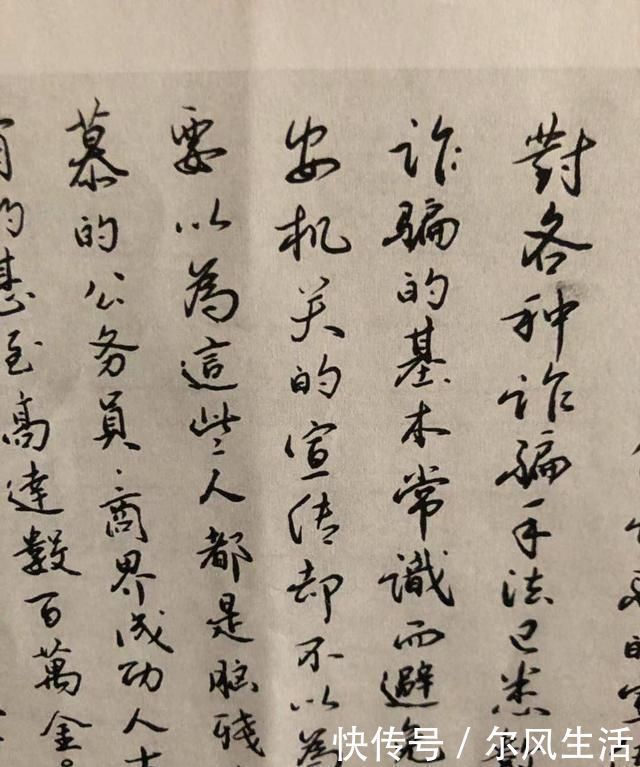 對各种詐骗手法已悉
詐骗的基本常識而避免
安机关的宣传却不以為
要以為這些人都是脑残
慕的公务員、商界成功人士
的甚至高達數百萬金。
快传号／尔风生活